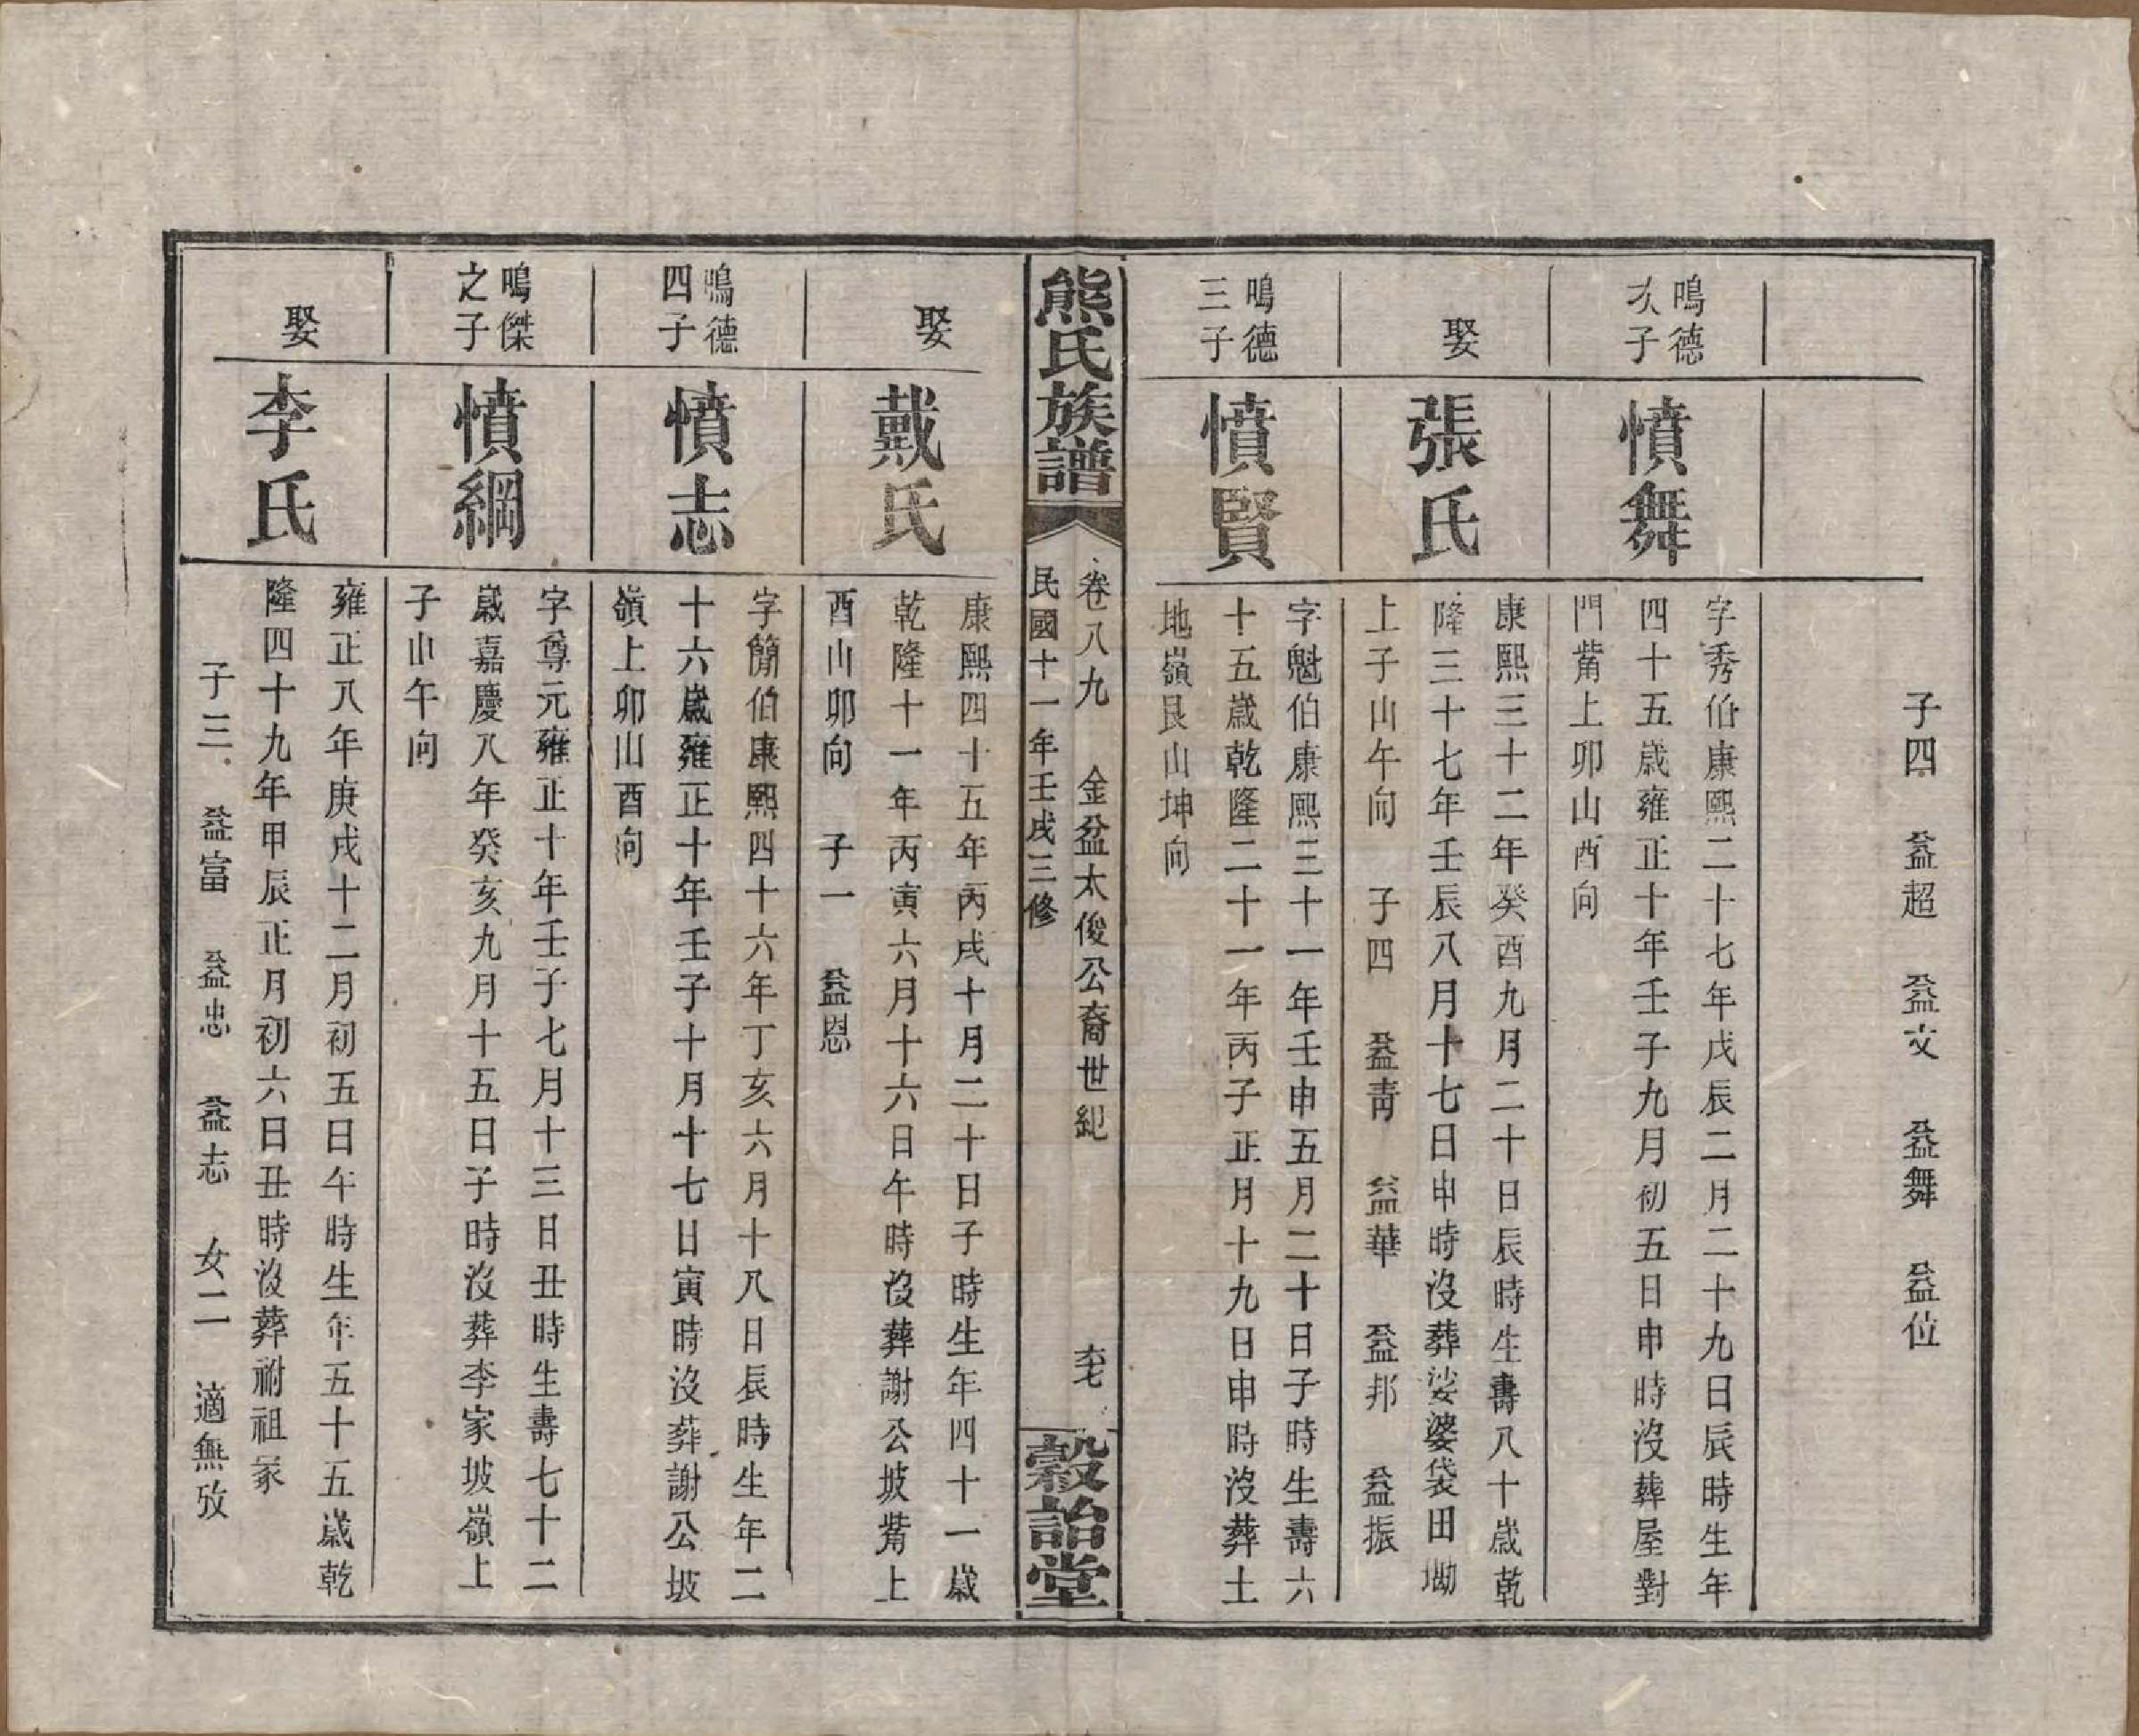 子四　益超　益文　益舞　益位
鳴德
次子
憤舞
字秀伯康熙二十七年戊辰二月二十九日辰時生年
四十五歲雍正十年壬子九月初五日申時沒葬屋對
門觜上卯山酉向
娶
張氏
康熙三十二年癸酉九月二十日辰時生壽八十歲乾
隆三十七年壬辰八月十七日申時沒葬娑婆袋田坳
上子山午向　子四　益靑　益華　益邦　益振
鳴德
三子
憤賢
字魁伯康熙三十一年壬申五月二十日子時生壽六
十五歲乾隆二十一年丙子正月十九日申時沒葬土
地嶺艮山坤向
熊氏族譜
卷八九　金盆太俊公裔世紀
民國十一年壬戌三修
穀詒堂
娶
戴氏
康熙四十五年丙戌十月二十日子時生年四十一歲
乾隆十一年丙寅六月十六日午時沒葬謝公坡觜上
酉山卯向　子一　益恩
鳴德
四子
憤志
字簡伯康熙四十六年丁亥六月十八日辰時生年二
十六歲雍正十年壬子十月十七日寅時沒葬謝公坡
嶺上卯山酉向
鳴傑
之子
憤綱
字尊元雍正十年壬子七月十三日丑時生壽七十二
歲嘉慶八年癸亥九月十五日子時沒葬李家坡嶺上
子山午向
娶
李氏
雍正八年庚戌十二月初五日午時生年五十五歲乾
隆四十九年甲辰正月初六日丑時沒葬祔祖冢
子三　益富　益忠　益志　女二　適無攷